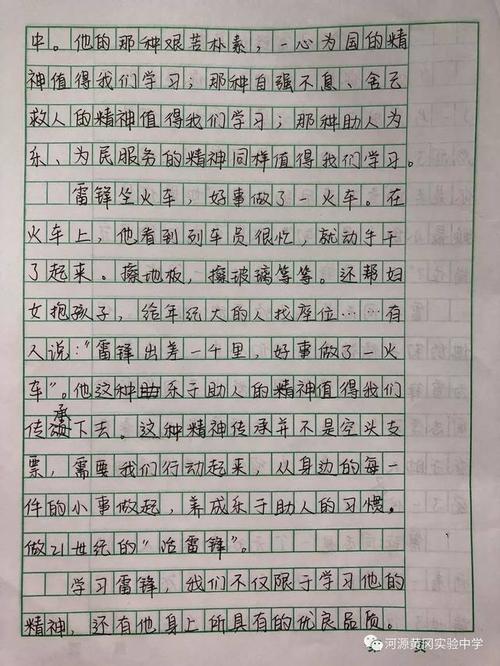 中。他的那种艰苦朴素，一心为国的精
神值得我们学习；那种自强不息、舍己
救人的精神值得我们学习；那种助人为
乐、为民服务的精神同样值得我们学习。
雷锋坐火车，好事做了一火车。在
火车上，他看到列车员很忙，就动手干
了起来。擦地板，擦玻璃等等。还帮妇
女抱孩子，给年纪大的人找座位……有
人说：“雷锋出差一千里，好事做了一火
车”。他这种乐于助人的精神值得我们
传承下去。这种精神传承并不是空头支
票，需要我们行动起来，从身边的每一
件的小事做起，养成乐于助人的习惯。
做21世纪的“活雷锋”。
学习雷锋，我们不仅限于学习他的
精神，还有他身上所具有的优良品质。
河源黄冈实验中学